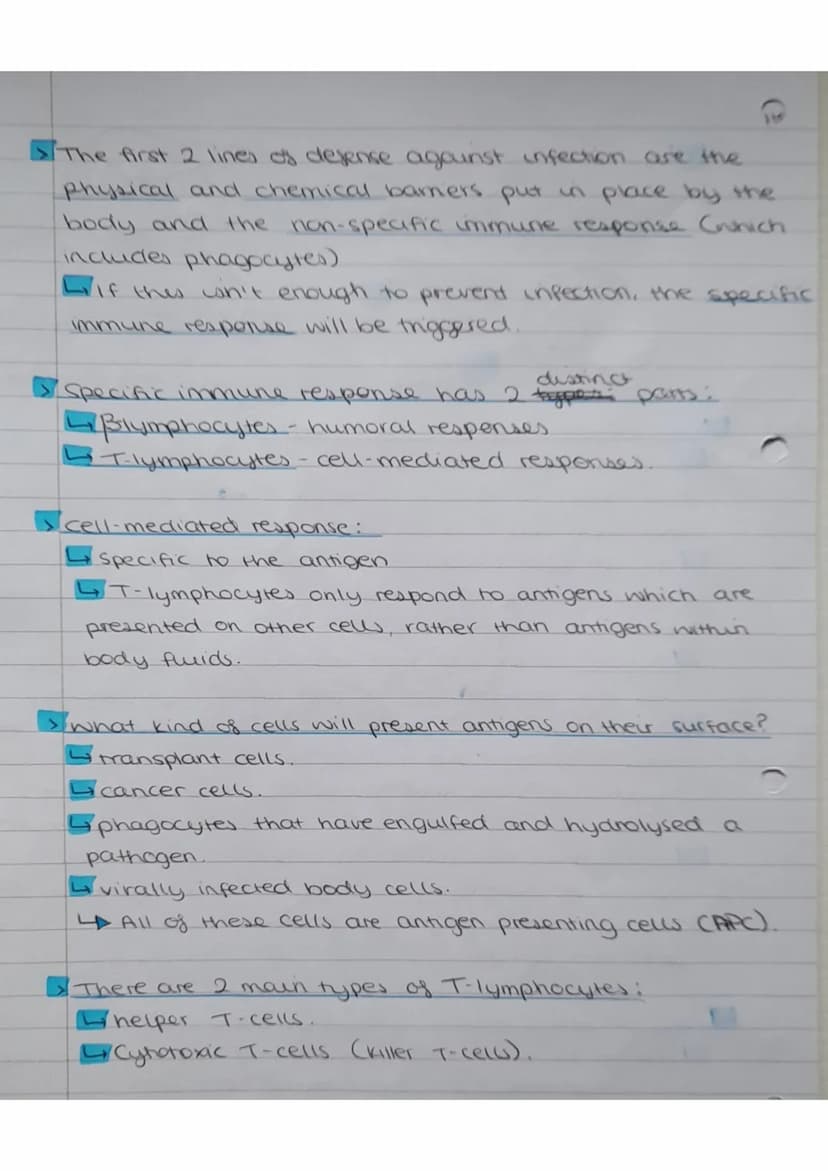 > The first 2 lines of defense against infection are the
physical and chemical barriers put in place by the
body and the non-specific immune response (which
includes phagocytes)
↳ If this isn't enough to prevent infection, the specific
immune response will be triggered.
> Specific immune response has 2 distinct parts:
↳ B-lymphocytes - humoral responses
↳ T-lymphocytes - cell-mediated responses.
> cell-mediated response:
↳ specific to the antigen
↳ T-lymphocytes only respond to antigens which are
presented on other cells, rather than antigens within
body fluids.
> what kind of cells will present antigens on their surface?
↳ transplant cells.
↳ cancer cells.
↳ phagocytes that have engulfed and hydrolysed a
pathogen.
↳ virally infected body cells.
↳ All of these cells are antigen presenting cells (APC).
> There are 2 main types of T-lymphocytes:
↳ helper T-cells.
↳ Cytotoxic T-cells (killer T-cells).